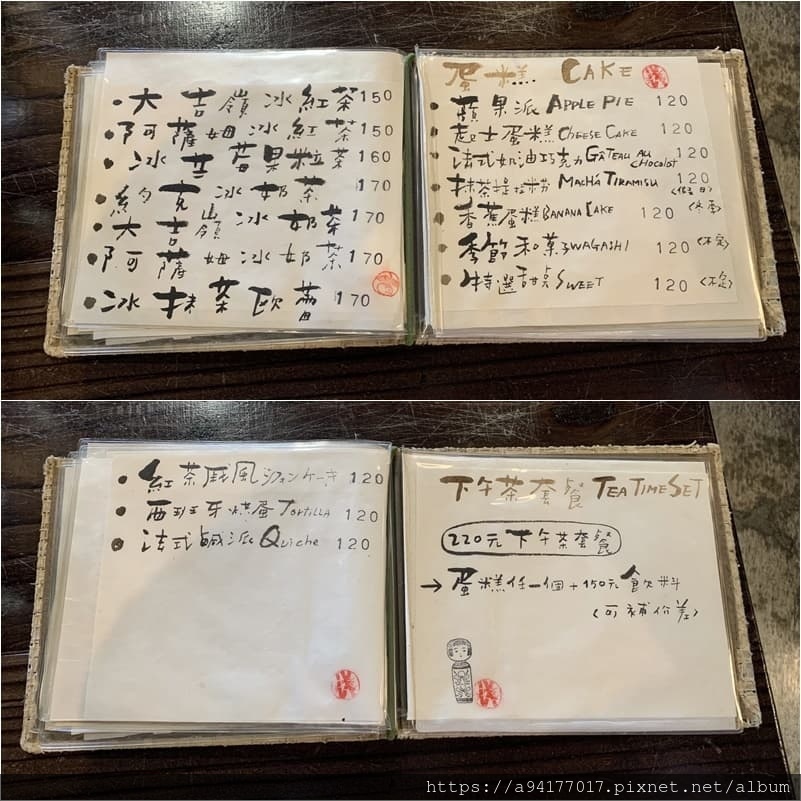 大吉嶺冰紅茶 150
阿薩姆冰紅茶 150
冰草莓果粒茶 160
約克冰奶茶 170
大吉嶺冰奶茶 170
阿薩姆冰奶茶 170
冰抹茶歐蕾 170
蛋糕 CAKE
蘋果派 APPLE PIE 120
起士蛋糕 CHEESE CAKE 120
法式奶油巧克力 GÂTEAU AU CHOCOLAT 120
抹茶提拉米蘇 MACHA TIRAMISU 120
(假日)
香蕉蛋糕 BANANA CAKE 120
季節和菓子 WAGASHI 120 (不定)
特選甜點 SWEET 120 (不定)
紅茶戚風 シフォンケーキ 120
西班牙烘蛋 TORTILLA 120
法式鹹派 Quiche 120
下午茶套餐 TEA TIME SET
220元下午茶套餐
→ 蛋糕任一個+150元飲料
(可補價差)
https://a94177017.pixnet.net/album